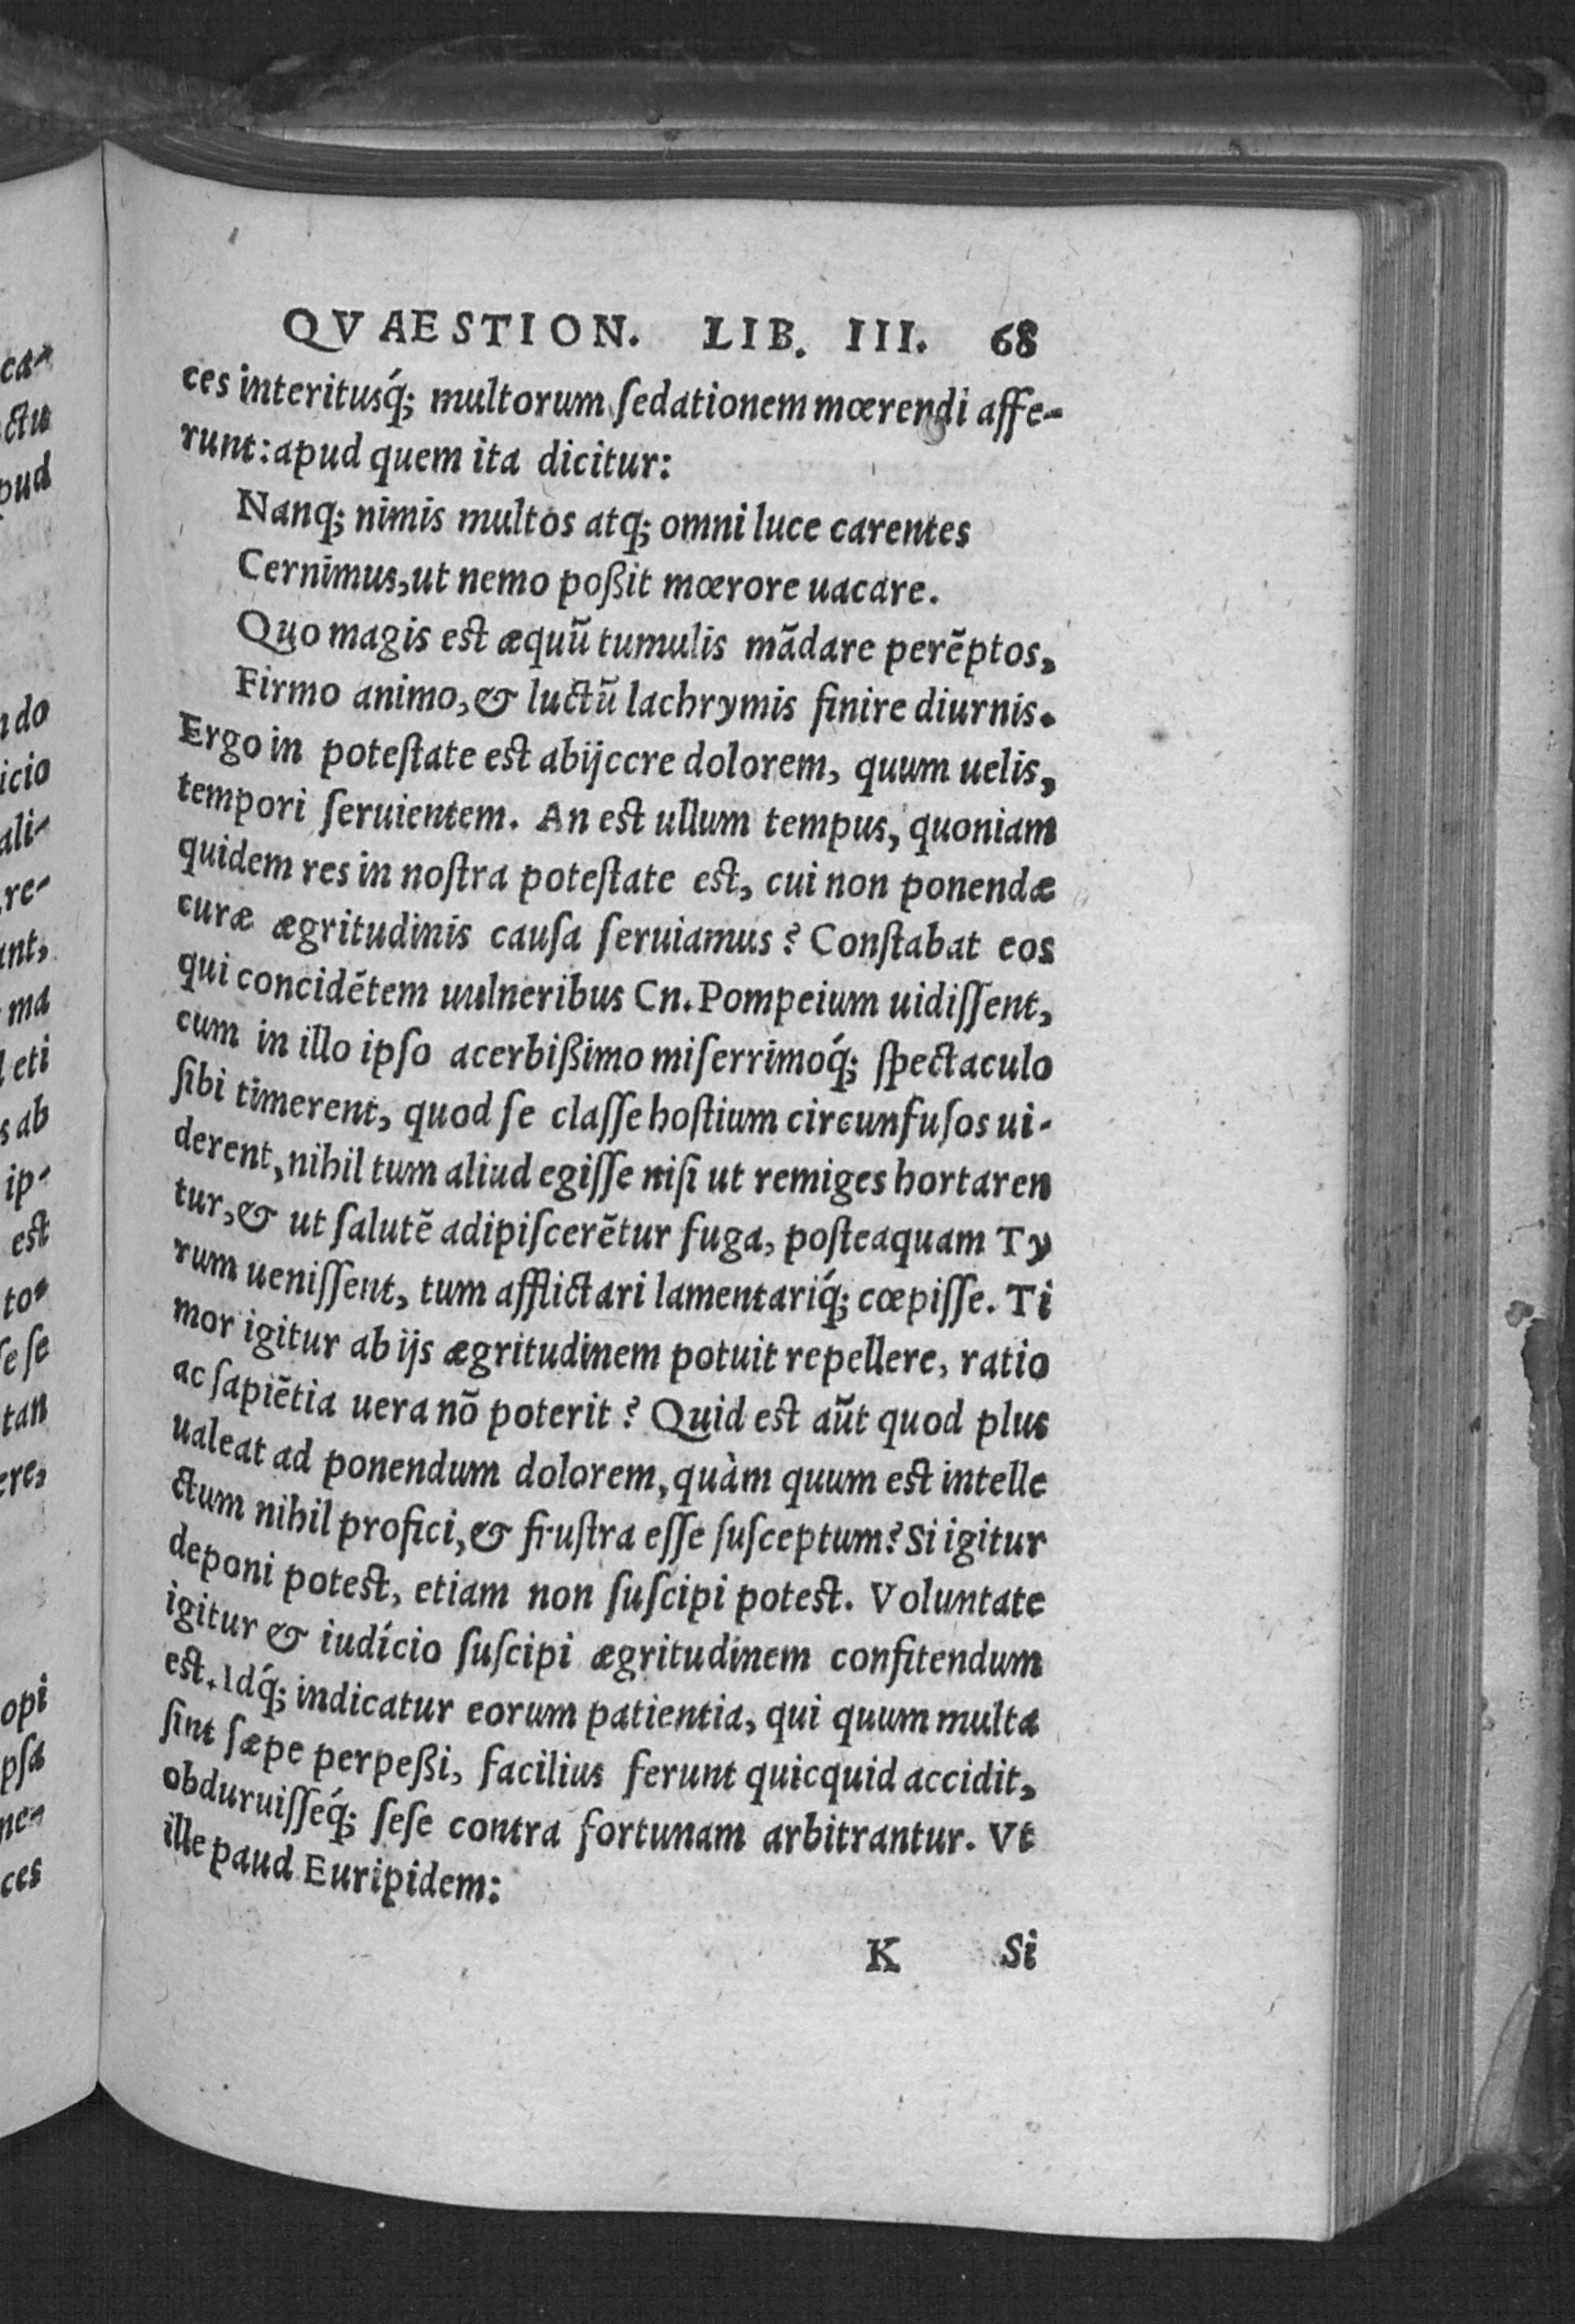 QVAESTION. LIB. III. 68
ces interitusq́; multorum ſedationem mœrendi affe-
runt: apud quem ita dicitur:
Nanq; nimis multos atq; omni luce carentes
Cernimus, ut nemo poßit mœrore uacare.
Quo magis est æquũ tumulis mãdare perẽptos,
Firmo animo, & luctũ lachrymis finire diurnis.
Ergo in poteſtate est abijccre dolorem, quum uelis,
tempori ſeruientem. An est ullum tempus, quoniam
quidem res in noſtra poteſtate est, cui non ponendæ
curæ ægritudinis cauſa ſeruiamus? Conſtabat eos
qui concidẽtem uulneribus Cn. Pompeium uidiſſent,
cum in illo ipſo acerbißimo miſerrimoq́; ſpectaculo
ſibi timerent, quod ſe claſſe hoſtium circunfuſos ui-
derent, nihil tum aliud egiſſe niſi ut remiges hortaren
tur, & ut ſalutẽ adipiſcerẽtur fuga, poſteaquam Ty
rum ueniſſent, tum afflictari lamentariq́; cœpiſſe. Ti
mor igitur ab ijs ægritudinem potuit repellere, ratio
ac ſapiẽtia uera nõ poterit? Quid est aũt quod plus
ualeat ad ponendum dolorem, quàm quum est intelle
ctum nihil profici, & fruſtra eſſe ſuſceptum? Si igitur
deponi potest, etiam non ſuſcipi potest. Voluntate
igitur & iudicio ſuſcipi ægritudinem confitendum
est. Idq́; indicatur eorum patientia, qui quum multa
ſint ſæpe perpeßi, facilius ferunt quicquid accidit,
obduruiſſeq́; ſeſe contra fortunam arbitrantur. Vt
ille paud Euripidem:
K Si